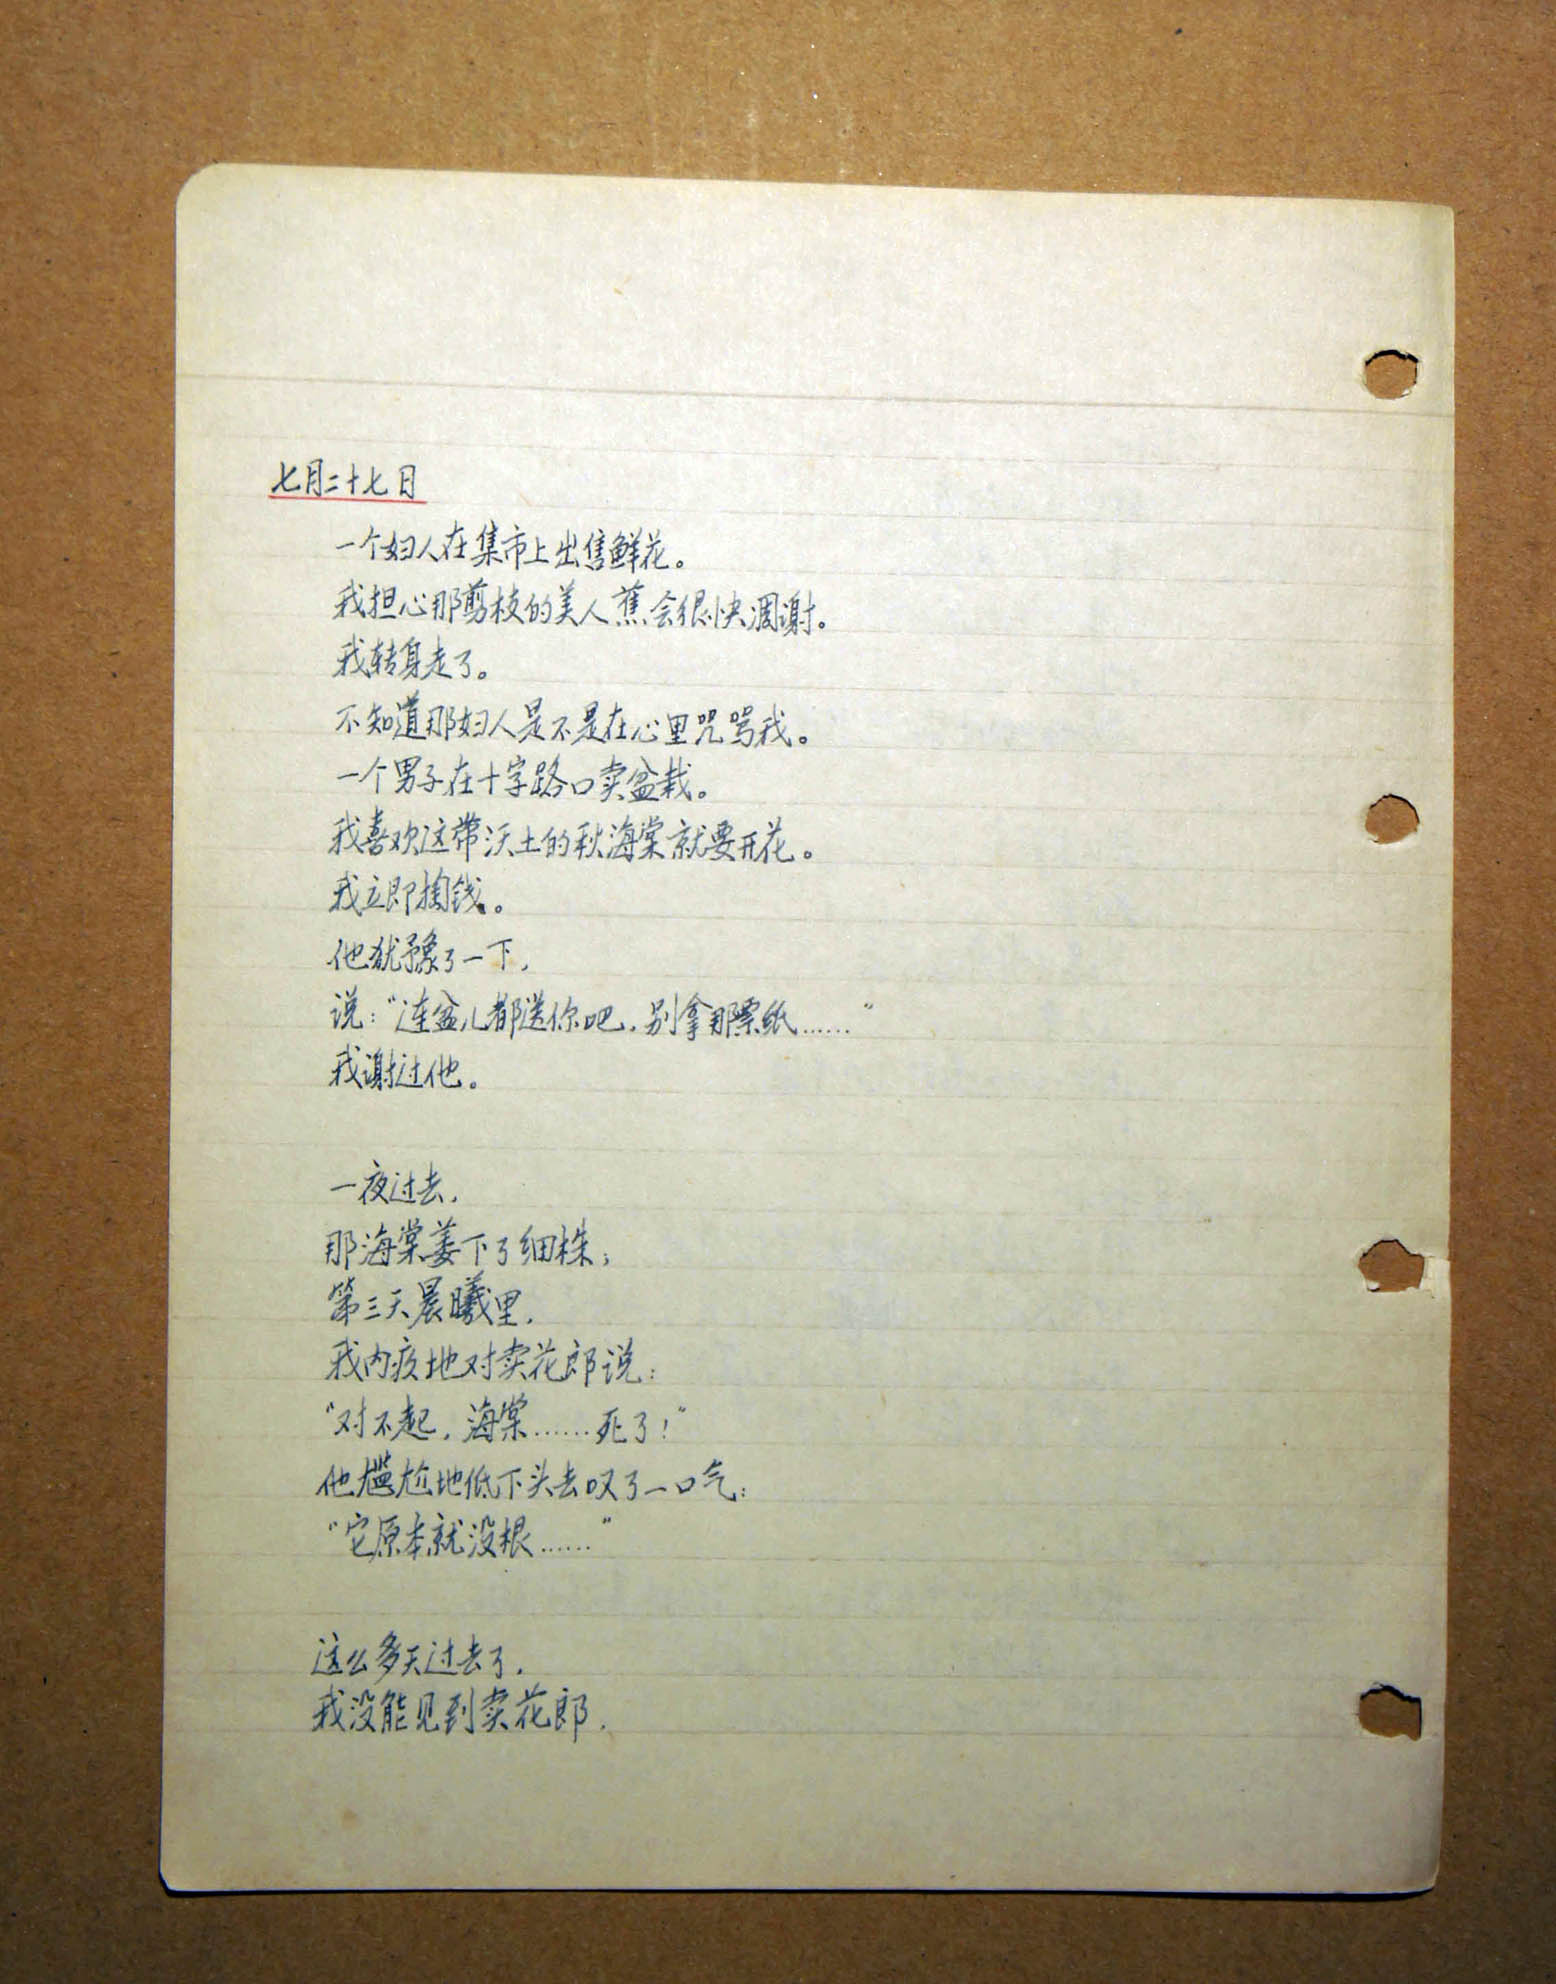 七月二十七日
一个妇人在集市上出售鲜花。
我担心那剪枝的美人蕉会很快凋谢。
我转身走了。
不知道那妇人是不是在心里咒骂我。
一个男子在十字路口卖盆栽。
我喜欢这带沃土的秋海棠就要开花。
我立即掏钱。
他犹豫了一下，
说：“连盆儿都送你吧，别拿那票纸……”
我谢过他。
一夜过去，
那海棠萎下了细株；
第三天晨曦里，
我内疚地对卖花郎说：
“对不起，海棠……死了！”
他尴尬地低下头去叹了一口气：
“它原本就没根……”
这么多天过去了，
我没能见到卖花郎，